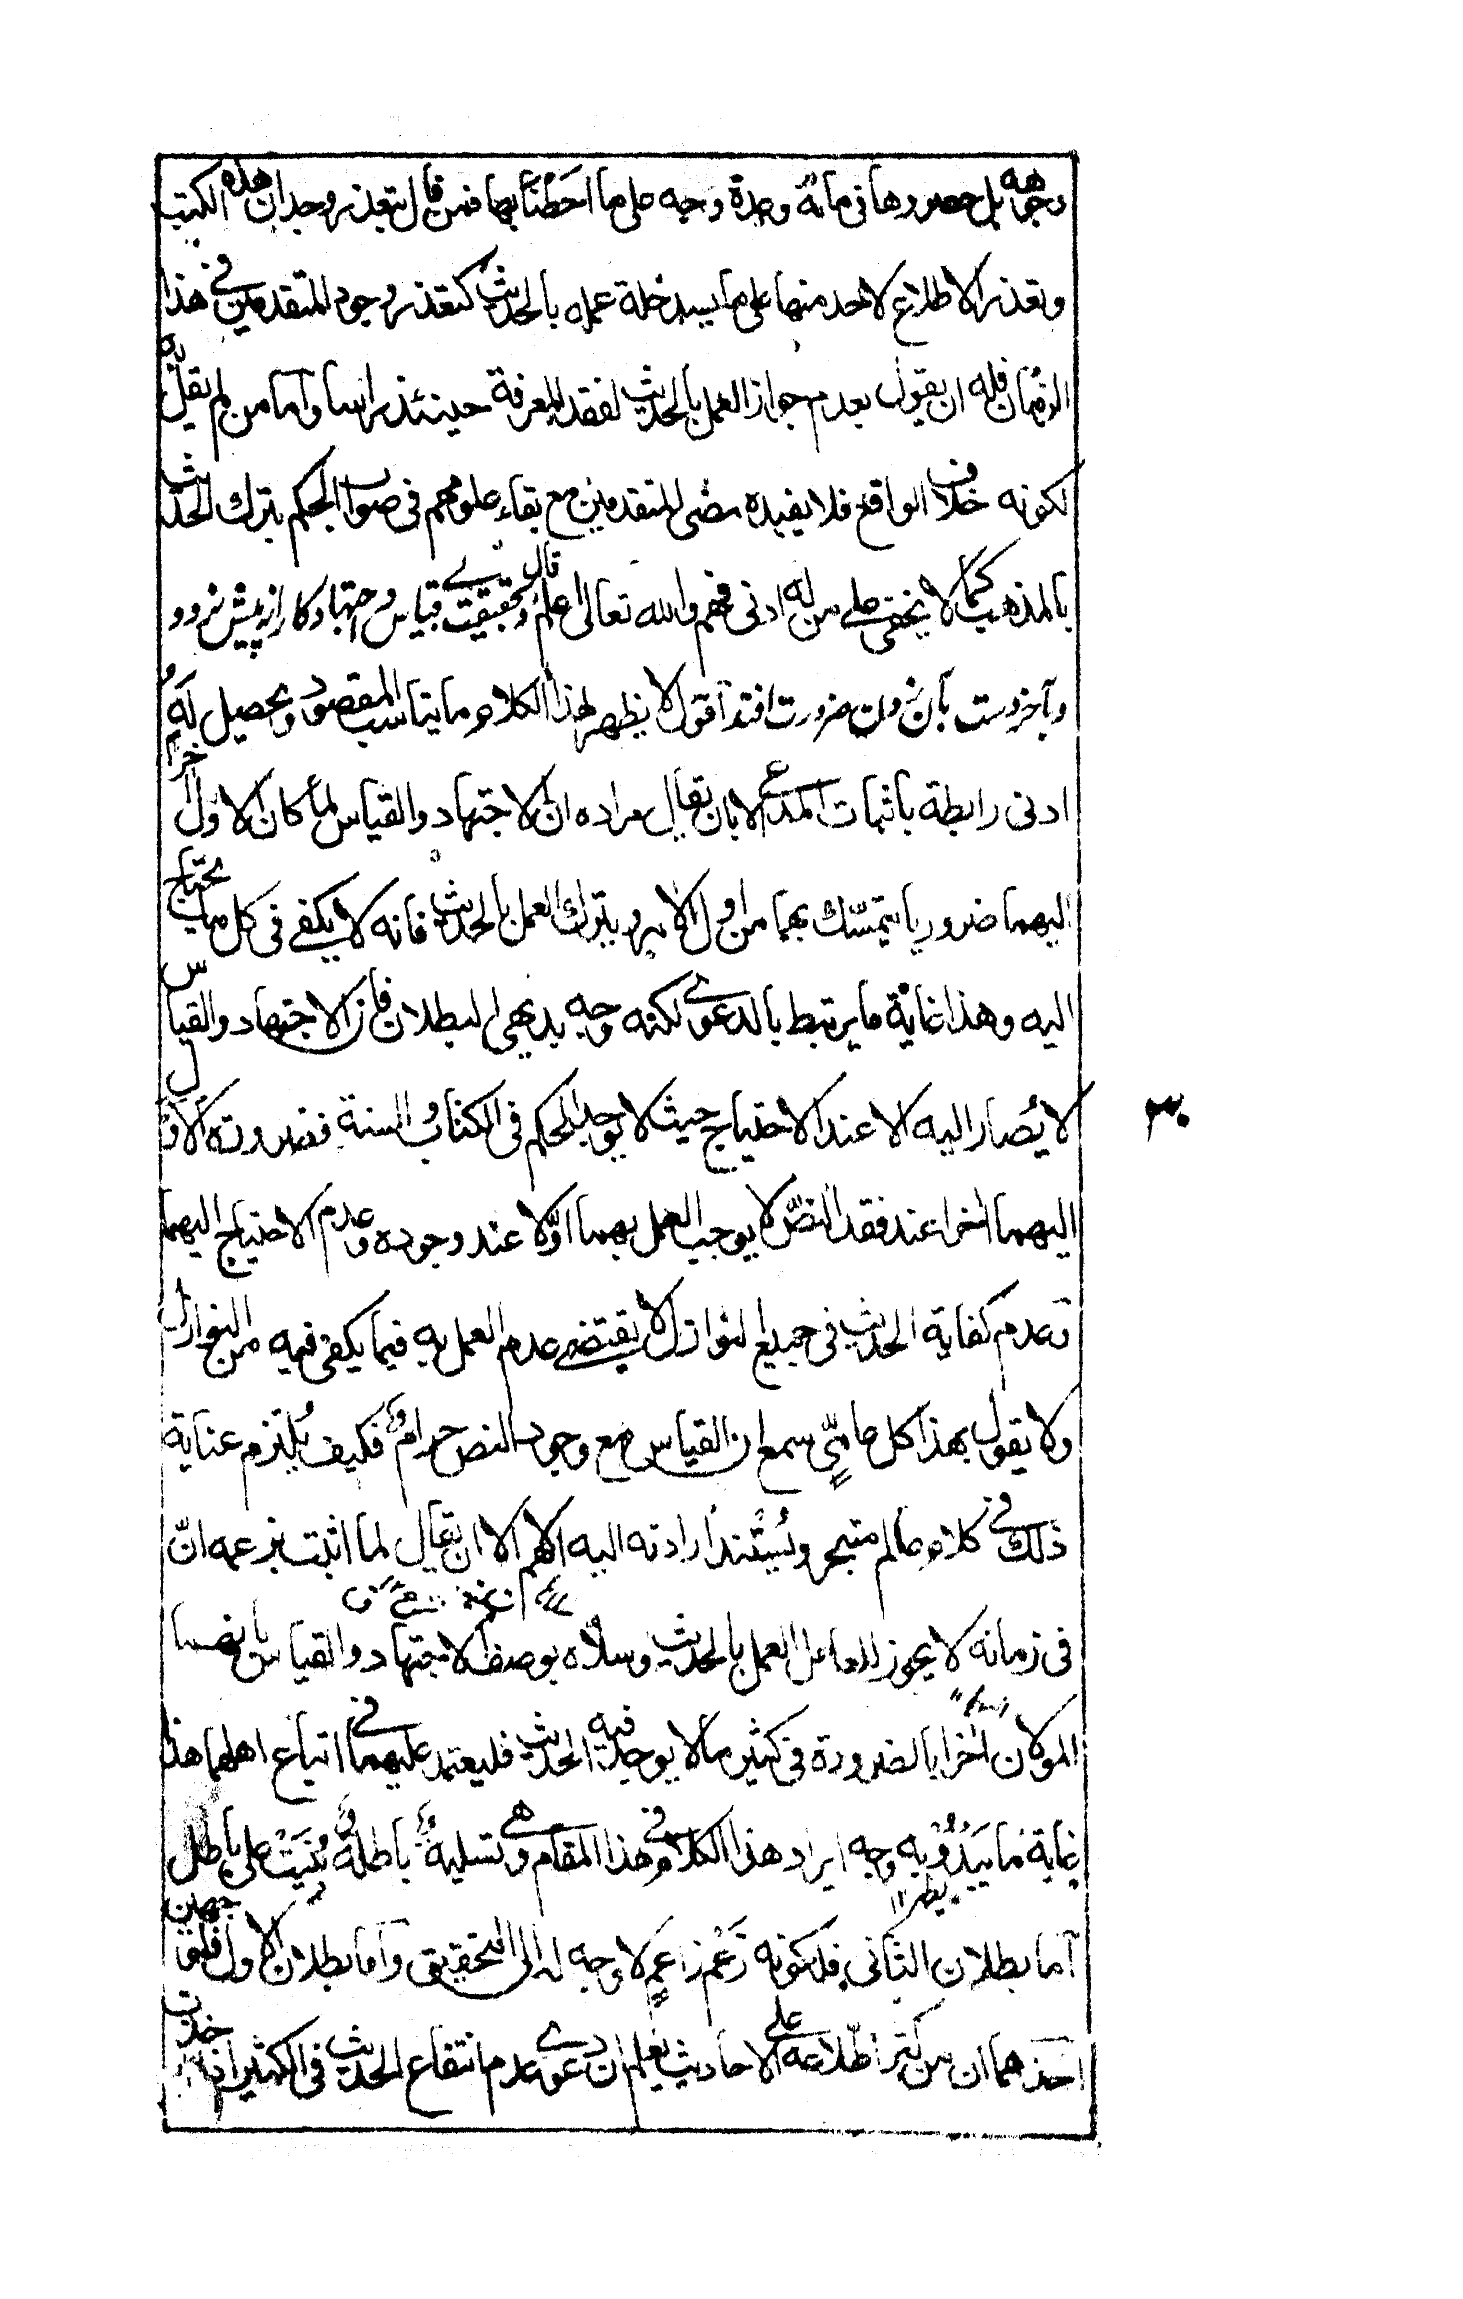 وجوهه بل حصروها في مائة وعدة وجيه على ما احطنا بها فمن قال بتعذر وجدان هذه الكتب
وتعذر الاطلاع لاحد منها على ما يسد خلة عمله بالحديث كتعذر وجود المتقدمين في هذا
الزمان فله ان يقول بعدم جواز العمل بالحديث لفقد المعرفة حينئذ راسا واما من لم يقل به
لكونه خلاف الواقع فلا يفيده مضى المتقدمين مع بقاء علومهم في صواب الحكم بترك الحديث
بالمذهب كما لا يخفى على من له ادنى فهم والله تعالى اعلم قال وحقيقت قياس واجتهاد كار از پيش نرود
وبآخر دست بآن نزون ضرورت افتد اقول لا يظهر لهذا الكلام ما يناسب المقصود ويحصيل له
ادنى رابطة باثبات المدعى الا بان يقال مراده ان الاجتهاد والقياس لما كان الاول آخرا
اليهما ضروريا يتمسك بهما من اول الامر ويترك العمل بالحديث فانه لا يكفى في كل ما يحتاج
اليه وهذا غاية ما يرتبط بالدعوى لكنه وجه بديهي البطلان فان الاجتهاد والقياس
لا يصار اليه الا عند الاحتياج حيث لا يوجد الحكم في الكتاب والسنة فضرورة الاول
اليهما اخرا عند فقد النص لا يوجب العمل بهما اولا عند وجوده وعدم الاحتياج اليهما
وعدم كفاية الحديث في جميع النوازل لا يقتضى عدم العمل به فيما يكفي فيه من النوازل
ولا يقول بهذا كل عامي سمع ان القياس مع وجود النص حرام فكيف يلتزم عناية
ذلك في كلام عالم متبحر ويستند ارادته اليه اللهم الا ان يقال لما اثبت بزعمه ان
في زمانه لا يجوز للعامل العمل بالحديث وسلاه بوصف الاجتهاد والقياس بانهما
المولان اخرا بالضرورة في كثير مما لا يوجد فيه الحديث فليعتمد عليهما في اتباع اهلهما هذا
غاية ما يبدو به وجه ايراد هذا الكلام في هذا المقام وهي تسلية باطلة بنيت على باطل
اما بطلان الثاني فلكونه زعم زاعم لا وجه له الى التحقيق واما بطلان الاول فلوجهين
احدهما ان من كثر اطلاعه على الاحاديث يعلم ان دعوى عدم انتفاع الحديث في الكثير
٣٠